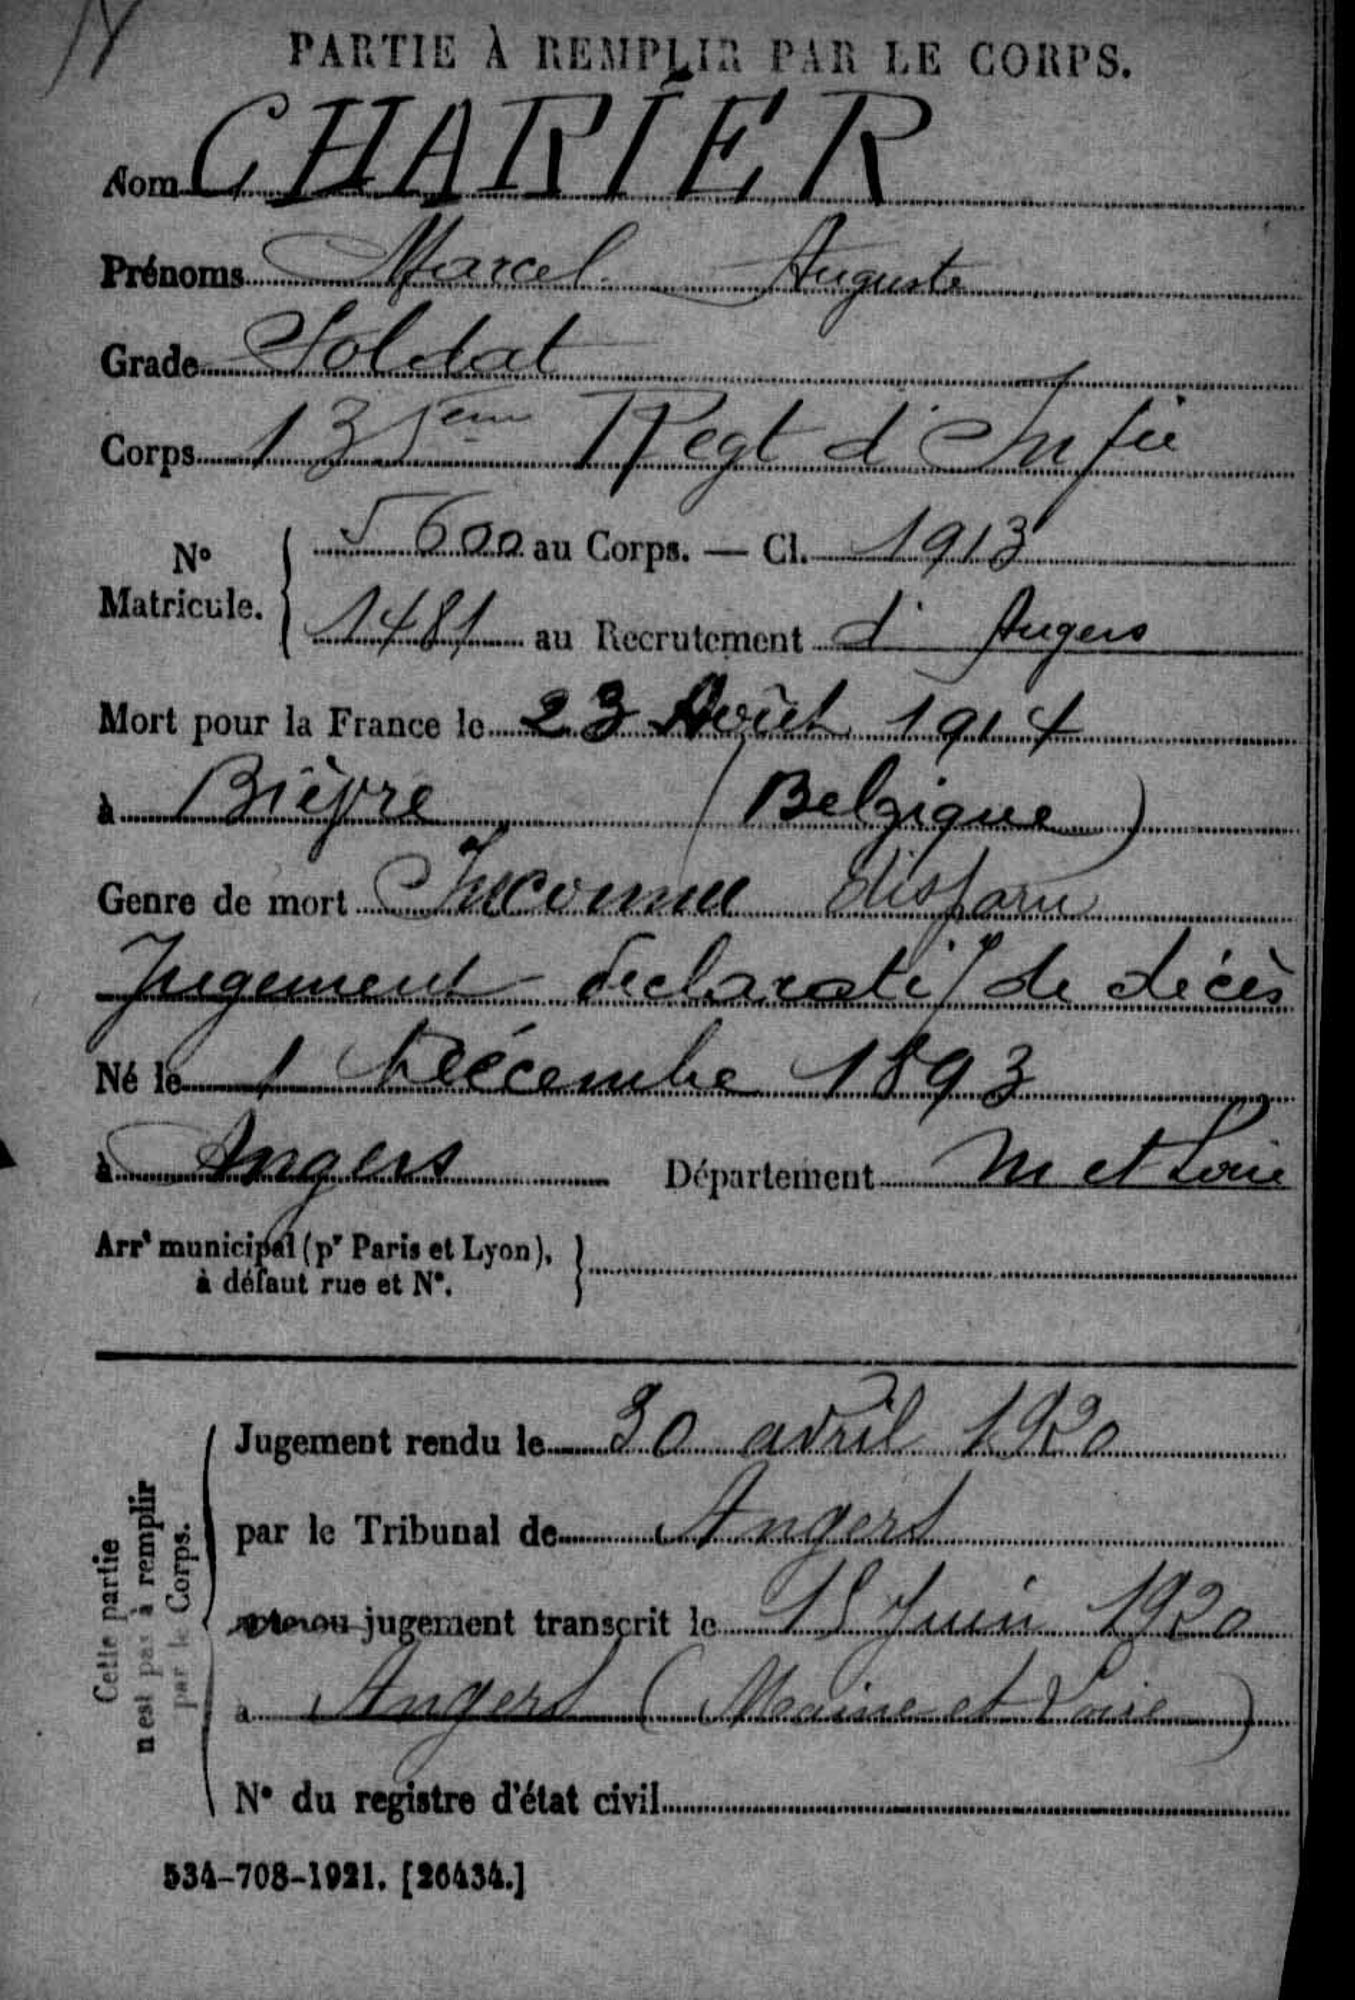 PARTIE À REMPLIR PAR LE CORPS.
Nom CHARIER
Prénoms Marcel Auguste
Grade Soldat
Corps 135eme Regt d'Infie
No Matricule. 5600 au Corps. — Cl. 1913
1481 au Recrutement d'Angers
Mort pour la France le 23 Août 1914
à Bièvre (Belgique)
Genre de mort Inconnu disparu
Jugement déclaratif de décès
Né le 1 Décembre 1893
à Angers Département M et Loire
Arrt municipal (pr Paris et Lyon),
à défaut rue et No.
Cette partie
n'est pas à remplir
par le Corps.
Jugement rendu le 30 avril 1920
par le Tribunal de Angers
acte ou jugement transcrit le 15 Juin 1920
à Angers (Maine et Loire)
No du registre d'état civil
534-708-1921. [26434.]